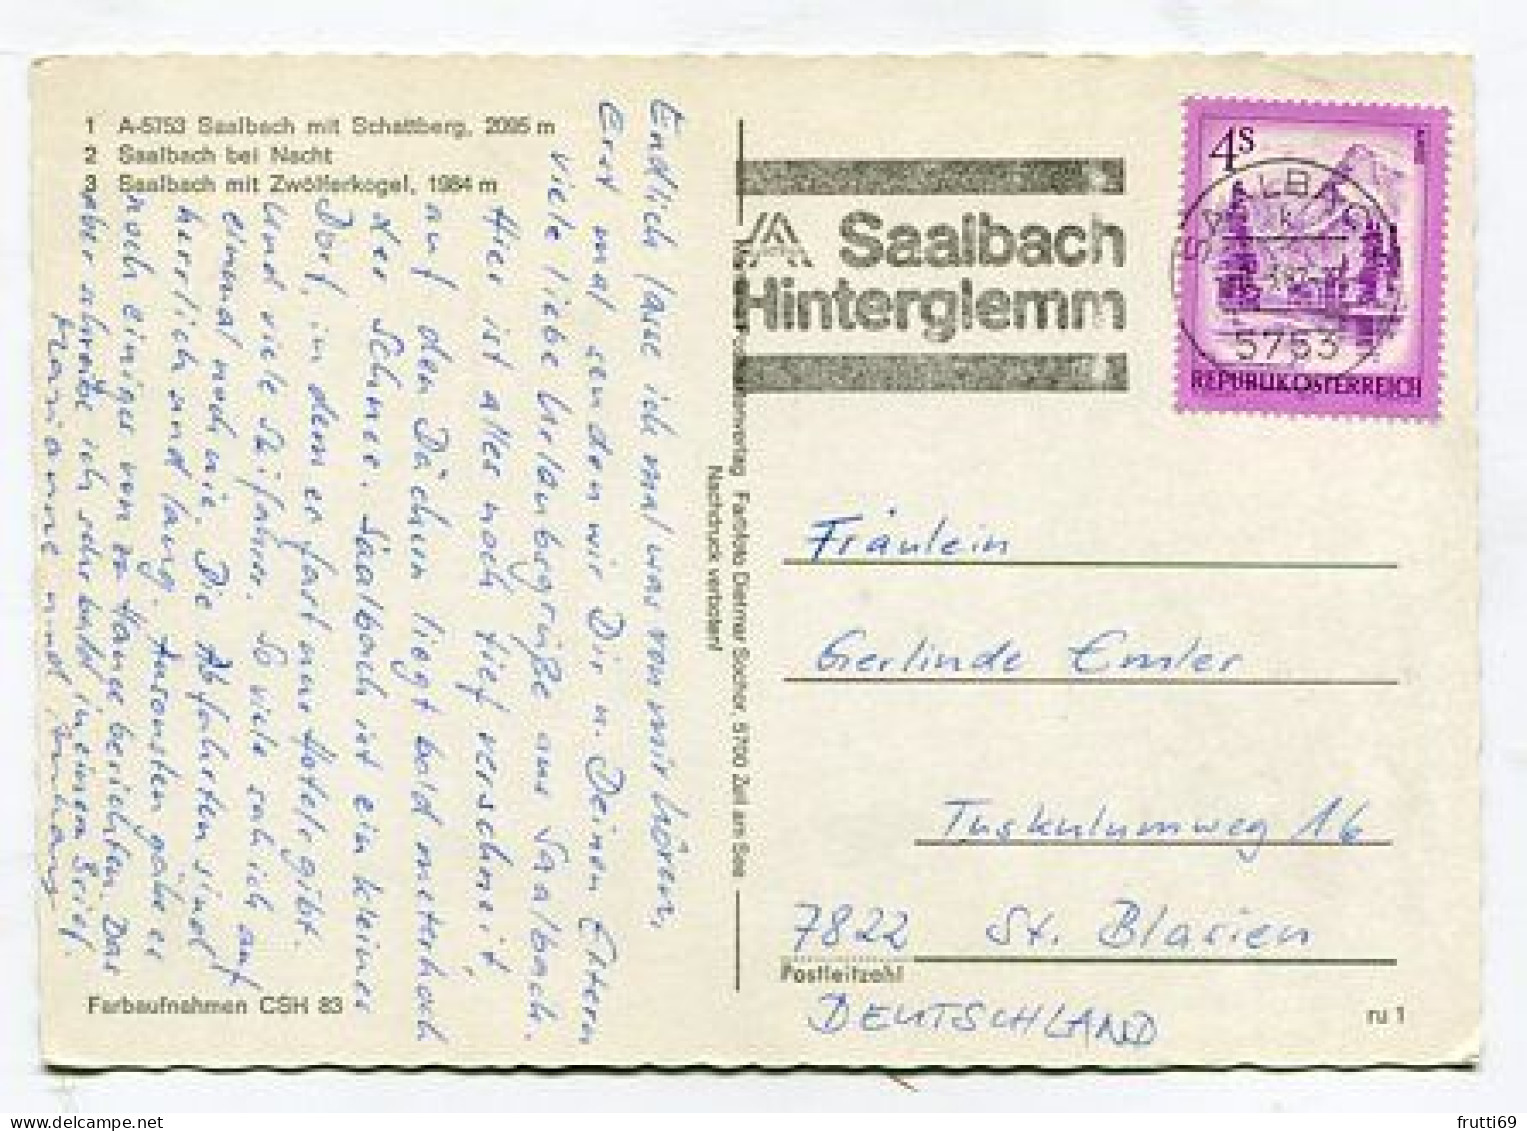 1 A-5753 Saalbach mit Schattberg, 2095 m
2 Saalbach bei Nacht
3 Saalbach mit Zwölferkogel, 1984 m
Endlich lasse ich mal was von mir hören,
Erst mal senden wir Dir u. Deinen Eltern
viele liebe Urlaubsgrüße aus Saalbach.
Hier ist alles noch tief verschneit,
auf den Dächern liegt bald meterhoch
der Schnee. Saalbach ist ein kleiner
Dorf, in dem er fast nur Hotels gibt.
Und viele Skifahrer. So viele sah ich auf
einmal noch nie. Die Abfahrten sind
herrlich und lang. Ansonsten gäbe er
noch einiges von zu Hause berichten. Das
aber schreibe ich sehr bald in einem Brief.
Marianne und
Farbaufnahmen CSH 83
Farbfoto Dietmar Sochor, 5700 Zell am See
Nachdruck verboten!
Saalbach
Hinterglemm
4S
SAALBACH
5753
REPUBLIK ÖSTERREICH
Fräulein
Gerlinde Emler
Tuskulumweg 16
7822 St. Blasien
Postleitzahl
DEUTSCHLAND
ru 1
frutti69